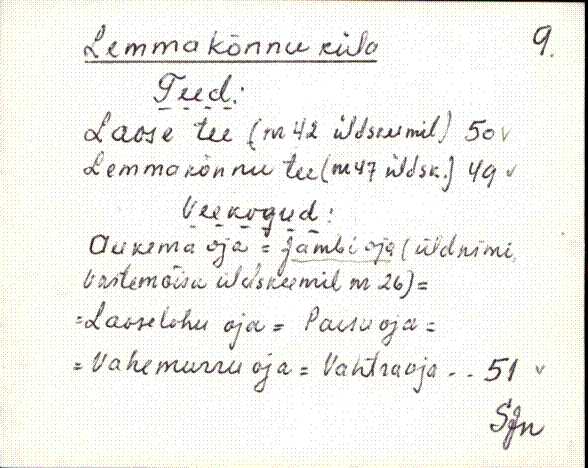 Lemmakõnnu küla 9.
Teed:
Laose tee (nr 42 üldskeemil) 50 v
Lemmakõnnu tee (nr 47 üldsk.) 49 v
Veekogud:
Aukema oja = Jambi oja (üldnimi,
Vastemõisa üldskeemil nr 26) =
= Laoselohu oja = Paisuoja =
= Vahemurru oja = Vahtraoja .. 51 v